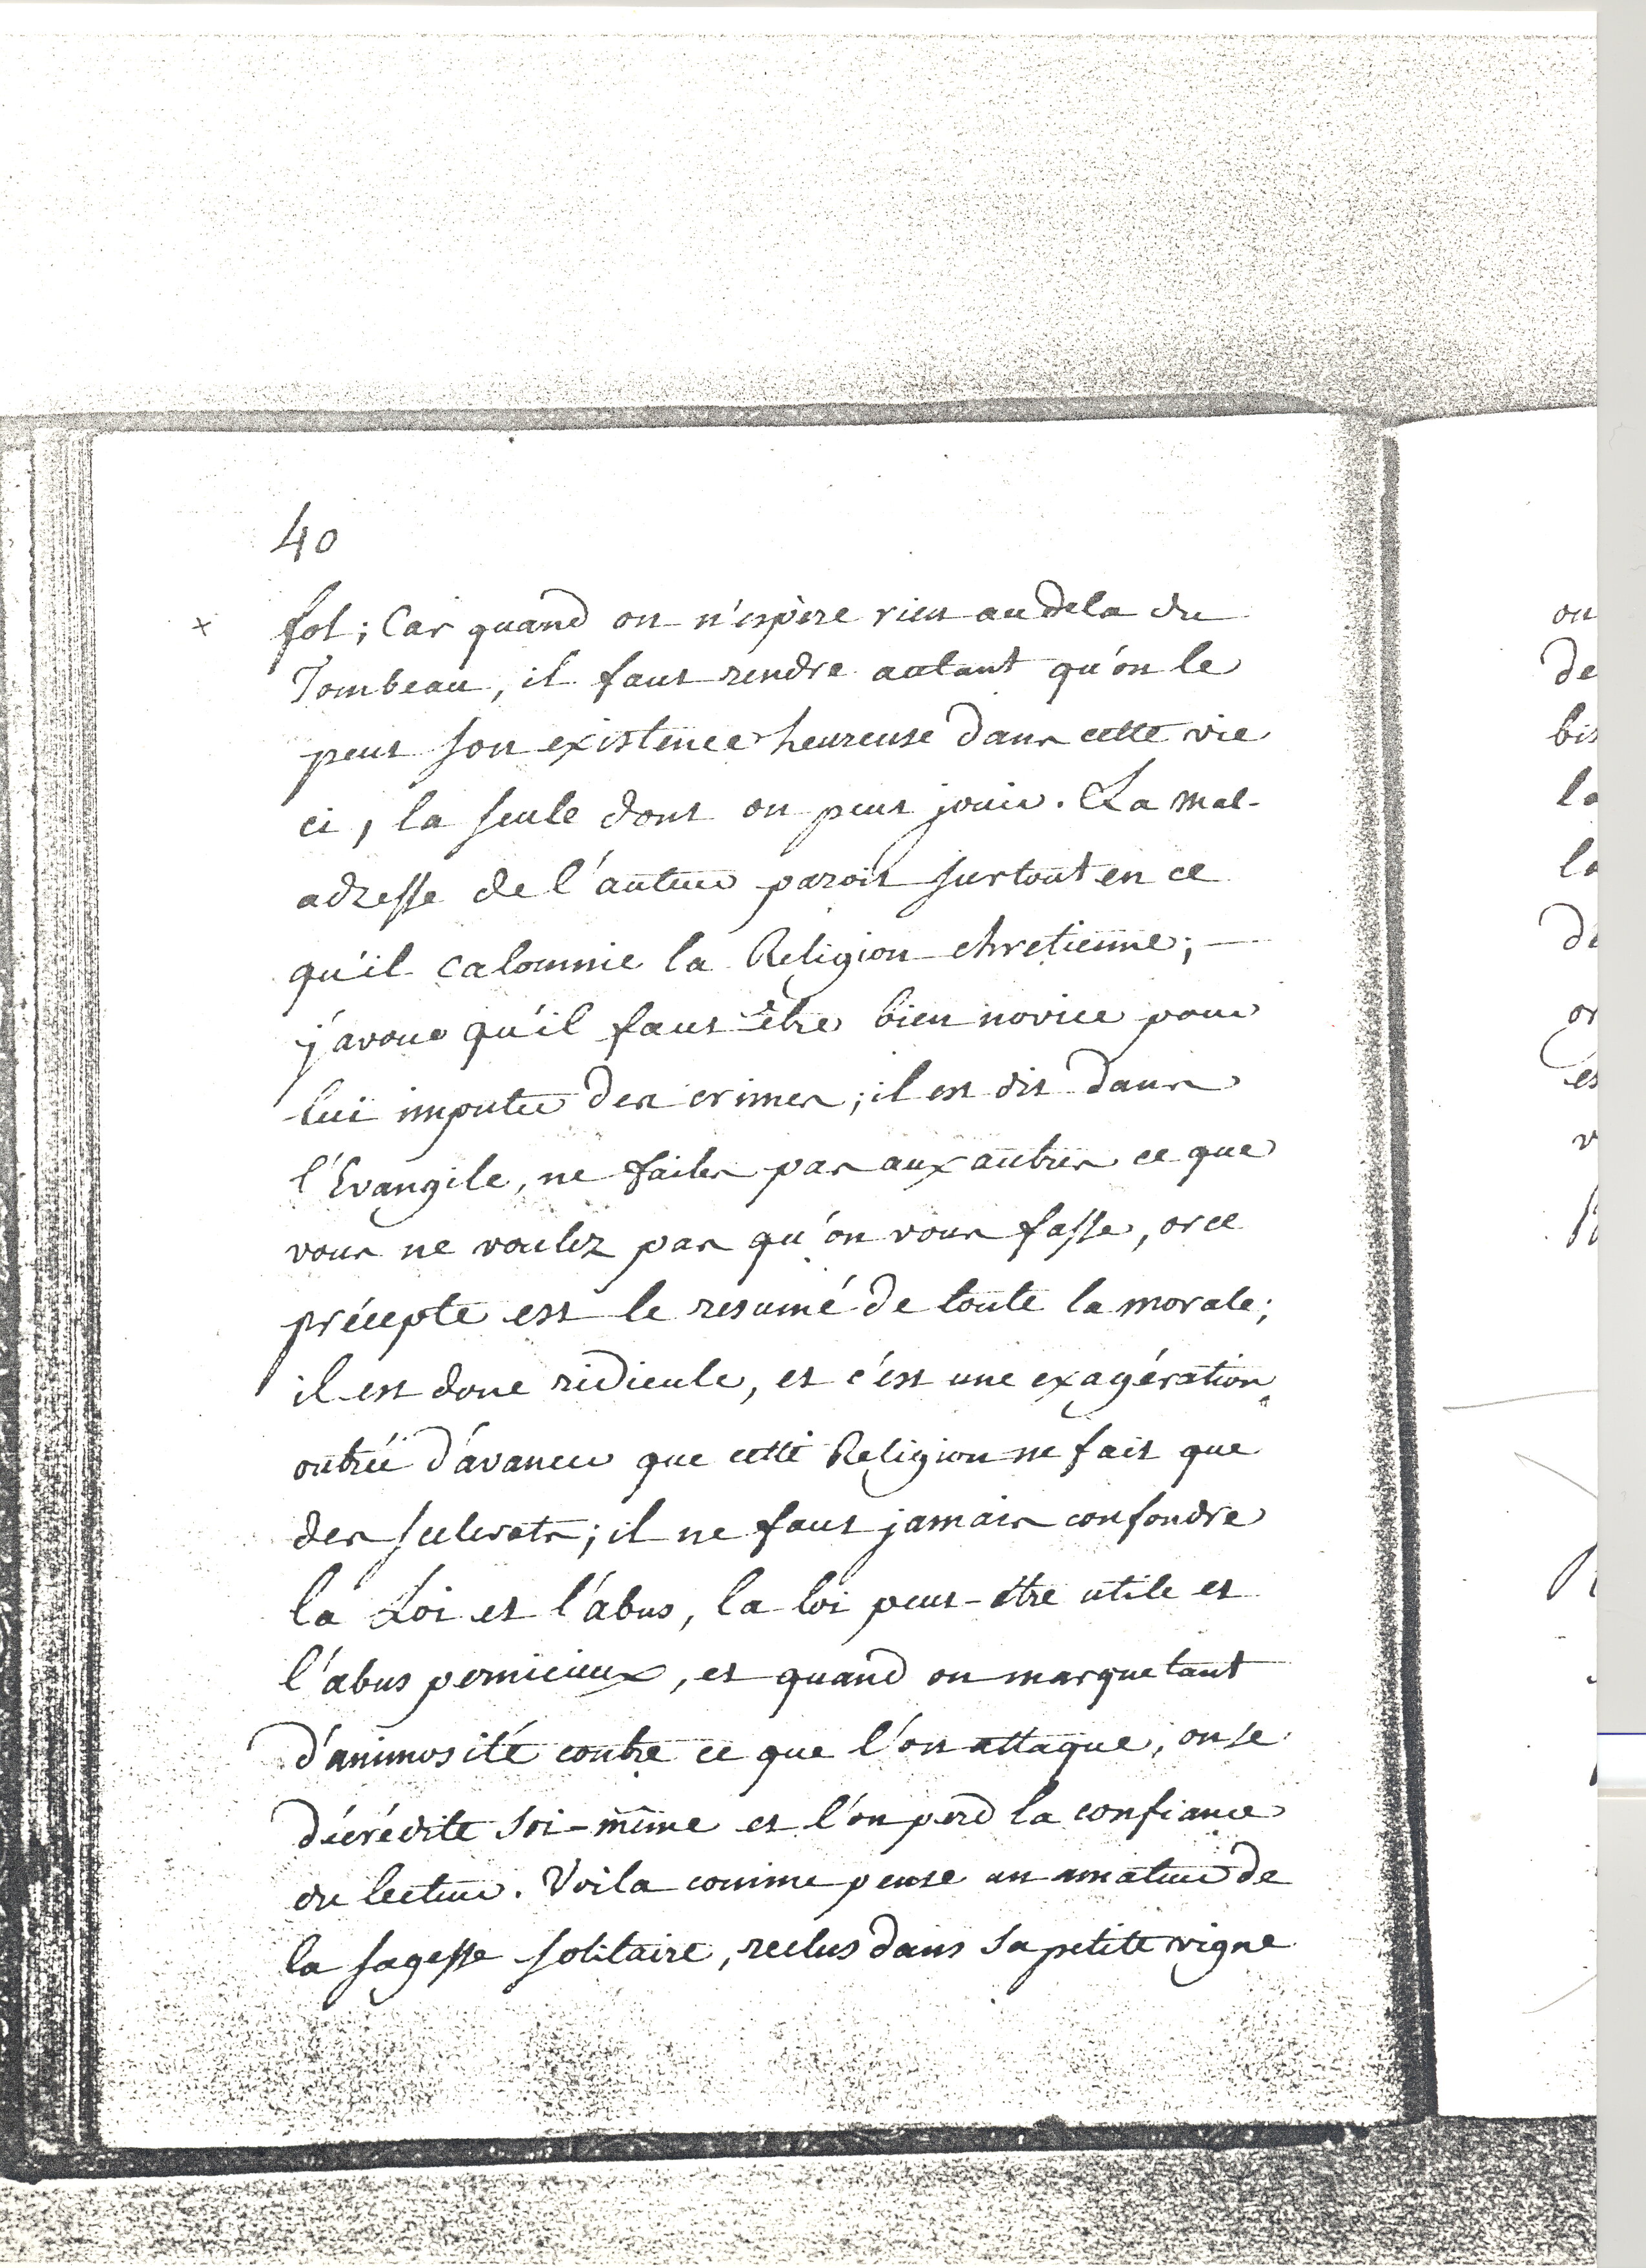 40
× sot ; Car quand on n'espère rien au dela du
Tombeau, il faut rendre autant qu'on le
peut son existence heureuse dans cette vie
ci, la seule dont on peut jouir. La mal-
adresse de l'auteur paroit surtout en ce
qu'il calomnie la Religion chretienne ; —
j'avoue qu'il faut être bien novice pour
lui imputer des crimes ; il est dit dans
l'Evangile, ne faites pas aux autres ce que
vous ne voulez pas qu'on vous fasse, or ce
précepte est le resumé de toute la morale ;
il est donc ridicule, et c'est une exagération
outrée d'avancer que cette Religion ne fait que
des scelerats ; il ne faut jamais confondre
la Loi et l'abus, la loi peut-être utile et
l'abus pernicieux, et quand on marque tant
d'animosité contre ce que l'on attaque, on se
décrédite soi-même et l'on perd la confiance
du lecteur. Voila comme pense un amateur de
la sagesse solitaire, reclus dans sa petite vigne
on
de
bis
la
la